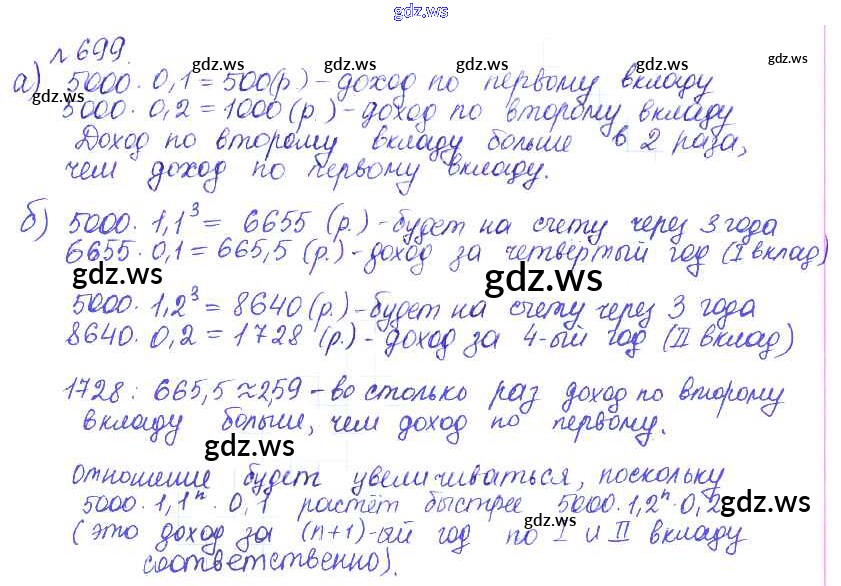 gdz.ws
№ 699.
gdz.ws gdz.ws gdz.ws
а) 5000 · 0,1 = 500(р) - доход по первому вкладу
gdz.ws
5000 · 0,2 = 1000 (р.) - доход по второму вкладу
Доход по второму вкладу больше в 2 раза,
чем доход по первому вкладу.
б) 5000 · 1,1³ = 6655 (р.) - будет на счету через 3 года
6655 · 0,1 = 665,5 (р.) - доход за четвёртый год (I вклад)
gdz.ws gdz.ws
5000 · 1,2³ = 8640 (р.) - будет на счету через 3 года
8640 · 0,2 = 1728 (р.) - доход за 4-ый год (II вклад)
1728 : 665,5 ≈ 2,59 - во столько раз доход по второму
вкладу больше, чем доход по первому.
gdz.ws
Отношение будет увеличиваться, поскольку
5000 · 1,1ⁿ · 0,1 растёт быстрее 5000 · 1,2ⁿ · 0,2
gdz.ws
(это доход за (n+1)-ый год по I и II вкладу
gdz.ws gdz.ws
соответственно).